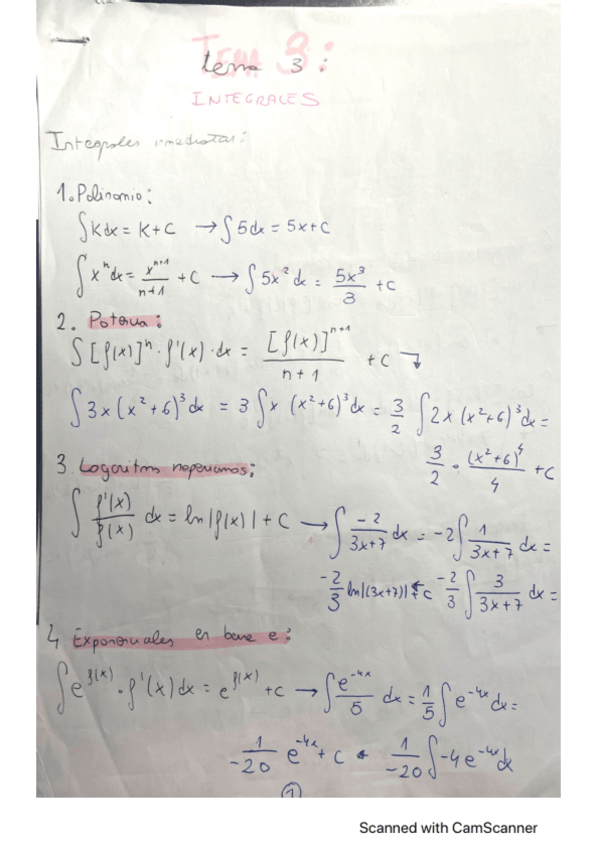 Tema 3:
tema 3:
INTEGRALES
Integrales inmediatas:
1. Polinomio:
∫Kdx = K+C → ∫5dx = 5x+C
∫xⁿdx = xⁿ⁺¹/n+1 + C → ∫5x²dx = 5x³/3 + C
2. Potencia:
∫[f(x)]ⁿ·f'(x)·dx = [f(x)]ⁿ⁺¹/n+1 + C ↴
∫3x(x²+6)³dx = 3∫x(x²+6)³dx = 3/2 ∫2x(x²+6)³dx =
3/2 · (x²+6)⁴/4 + C
3. Logaritmos neperianos:
∫f'(x)/f(x) dx = ln|f(x)| + C → ∫-2/3x+7 dx = -2∫1/3x+7 dx =
-2/3 ln|(3x+7)| + C ← -2/3 ∫3/3x+7 dx =
4. Exponenciales en base e:
∫e^f(x)·f'(x)dx = e^f(x) + C → ∫e^-4x/5 dx = 1/5 ∫e^-4x dx =
1/-20 e^-4x + C ← 1/-20 ∫-4e^-4x dx
1
Scanned with CamScanner